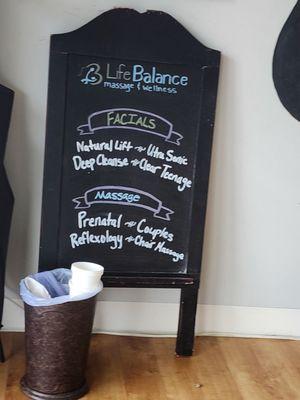 Life Balance
massage & wellness
FACIALS
Natural Lift ~ Ultra Sonic
Deep Cleanse ~ Clear Teenage
Massage
Prenatal ~ Couples
Reflexology ~ Chair Massage